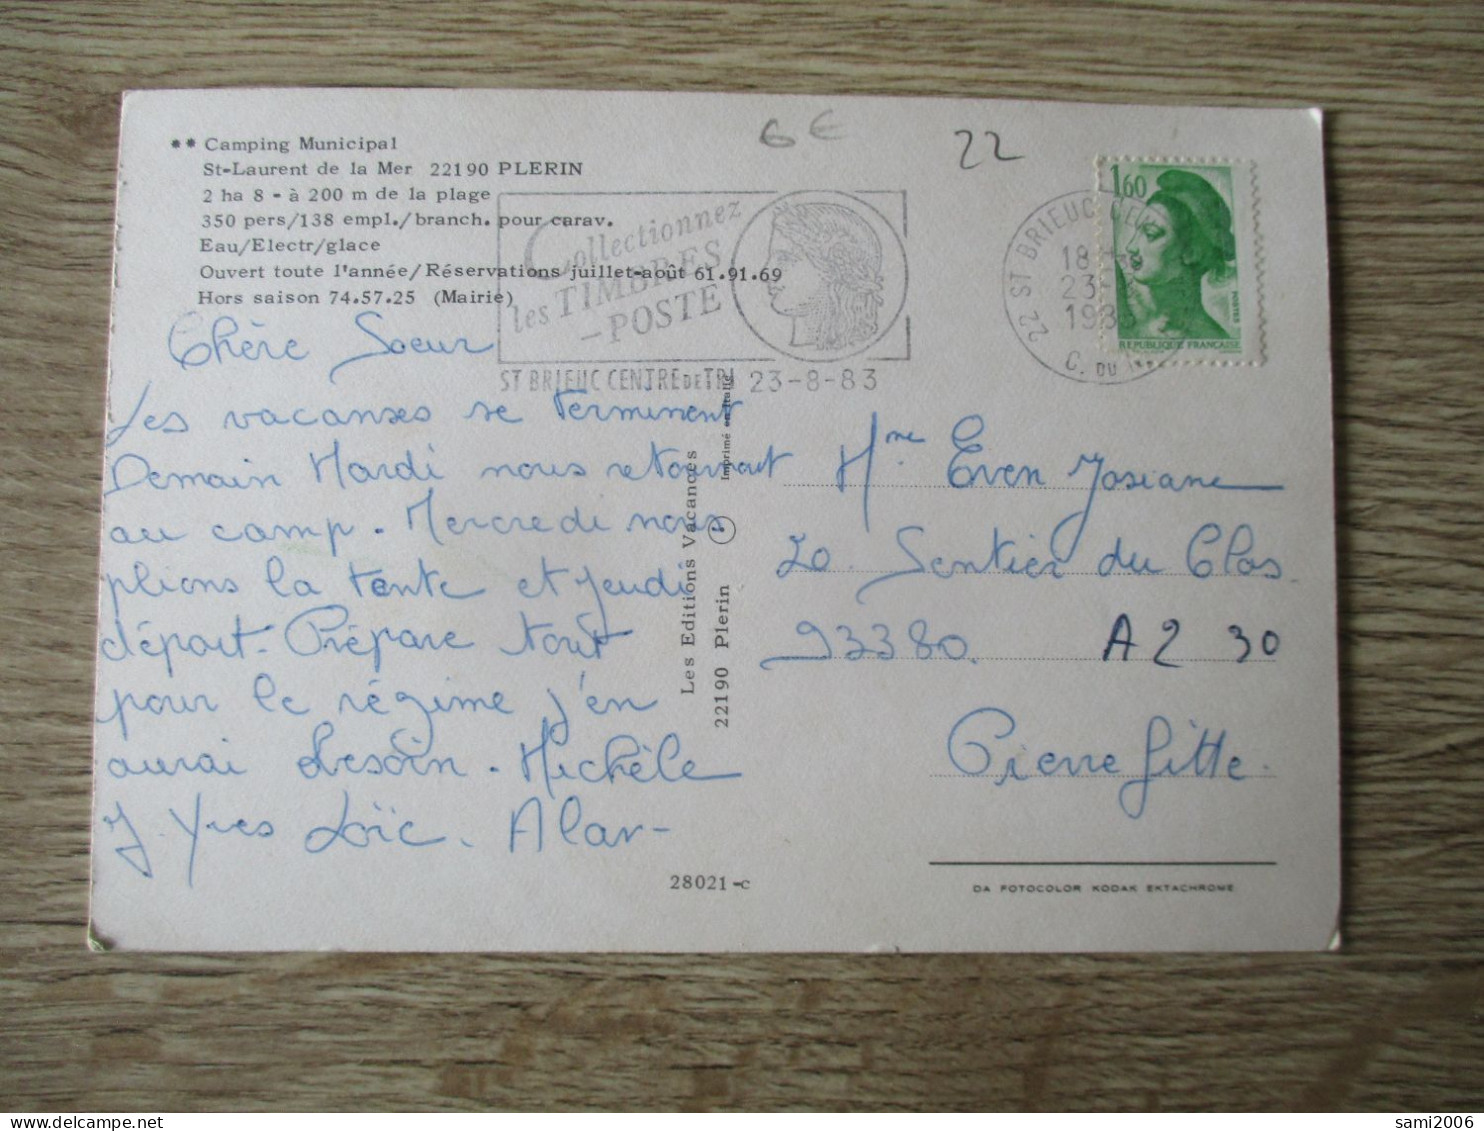 6 €
22
** Camping Municipal
St-Laurent de la Mer 22190 PLERIN
2 ha 8 - à 200 m de la plage
350 pers/138 empl./branch. pour carav.
Eau/Electr/glace
Ouvert toute l'année/Réservations juillet-août 61.91.69
Hors saison 74.57.25 (Mairie)
Collectionnez
les TIMBRES
-POSTE
ST BRIEUC CENTRE DE TRI 23-8-83
22 ST BRIEUC
18
23
1983
C. DU
1,60
POSTES
REPUBLIQUE FRANÇAISE
Chère Soeur
Les vacances se terminent
Demain Mardi nous retournont
au camp. Mercredi nous
plions la tente et jeudi
départ. Prépare tout
pour le régime j'en
aurai besoin. Michèle
J. Yves Loïc. Alan-
Les Editions Vacances
22190 Plerin
Imprimé en Italie
Mme Even Josiane
20 Sentier du Clos
93380. A2 30
Pierrefitte.
28021-c
DA FOTOCOLOR KODAK EKTACHROME
sami2006
delcampe.net